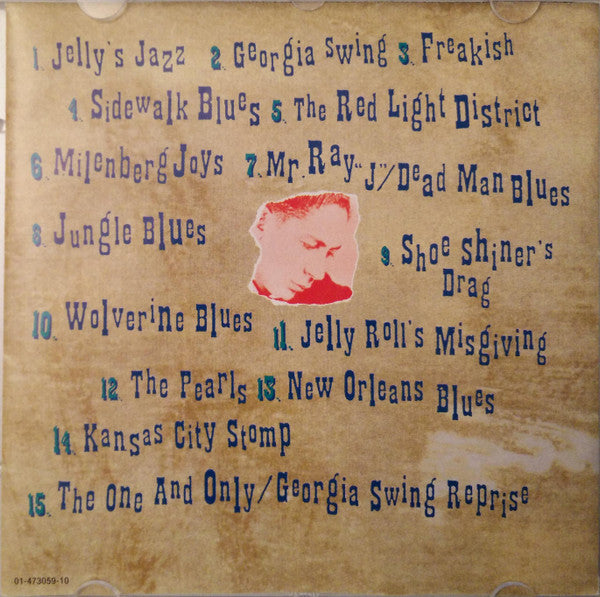 1. Jelly's Jazz 2. Georgia Swing 3. Freakish
4. Sidewalk Blues 5. The Red Light District
6. Milenberg Joys 7. Mr. Ray "J"/Dead Man Blues
8. Jungle Blues
9. Shoe Shiner's
Drag
10. Wolverine Blues
11. Jelly Roll's Misgiving
12. The Pearls 13. New Orleans Blues
14. Kansas City Stomp
15. The One And Only/Georgia Swing Reprise
01-473059-10